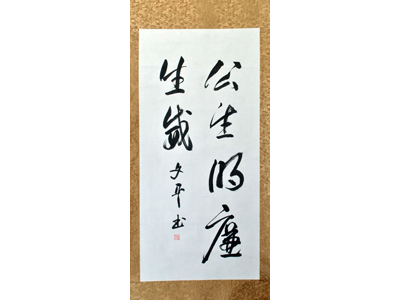 公生明廉
生威
文平书